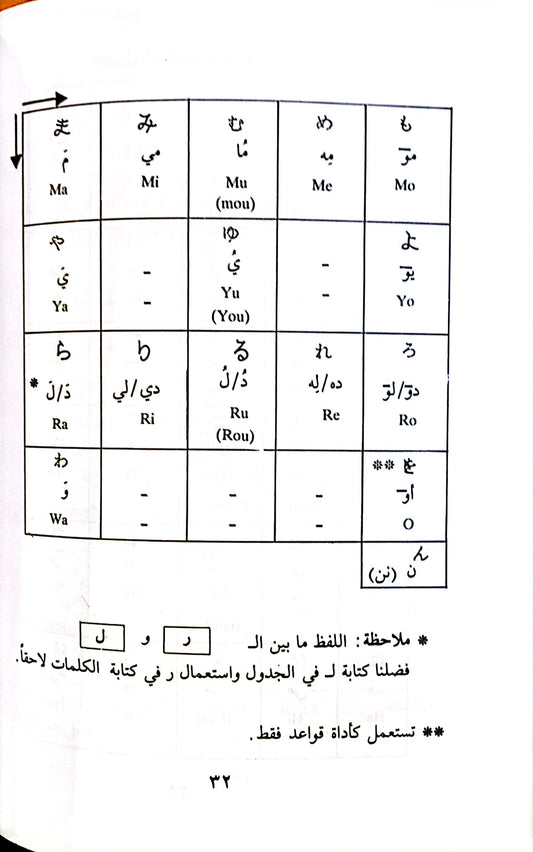 ま み む め も
مَ مي مُا مِه موَّ
Ma Mi Mu Me Mo
(mou)
や ゆ よ
يَ - يُ - يوَّ
Ya - Yu - Yo
(You)
ら り る れ ろ
* دَ/لَ دي/لي دُ/لُ ده/لِه دوَّ/لوَّ
Ra Ri Ru Re Ro
(Rou)
わ ** を
وَ - - - أوَّ
Wa - - - O
ん
ن (نن)
* ملاحظة: اللفظ ما بين الـ ر و ل
فضلنا كتابة لـ في الجدول واستعمال ر في كتابة الكلمات لاحقاً.
** تستعمل كأداة قواعد فقط.
٣٢